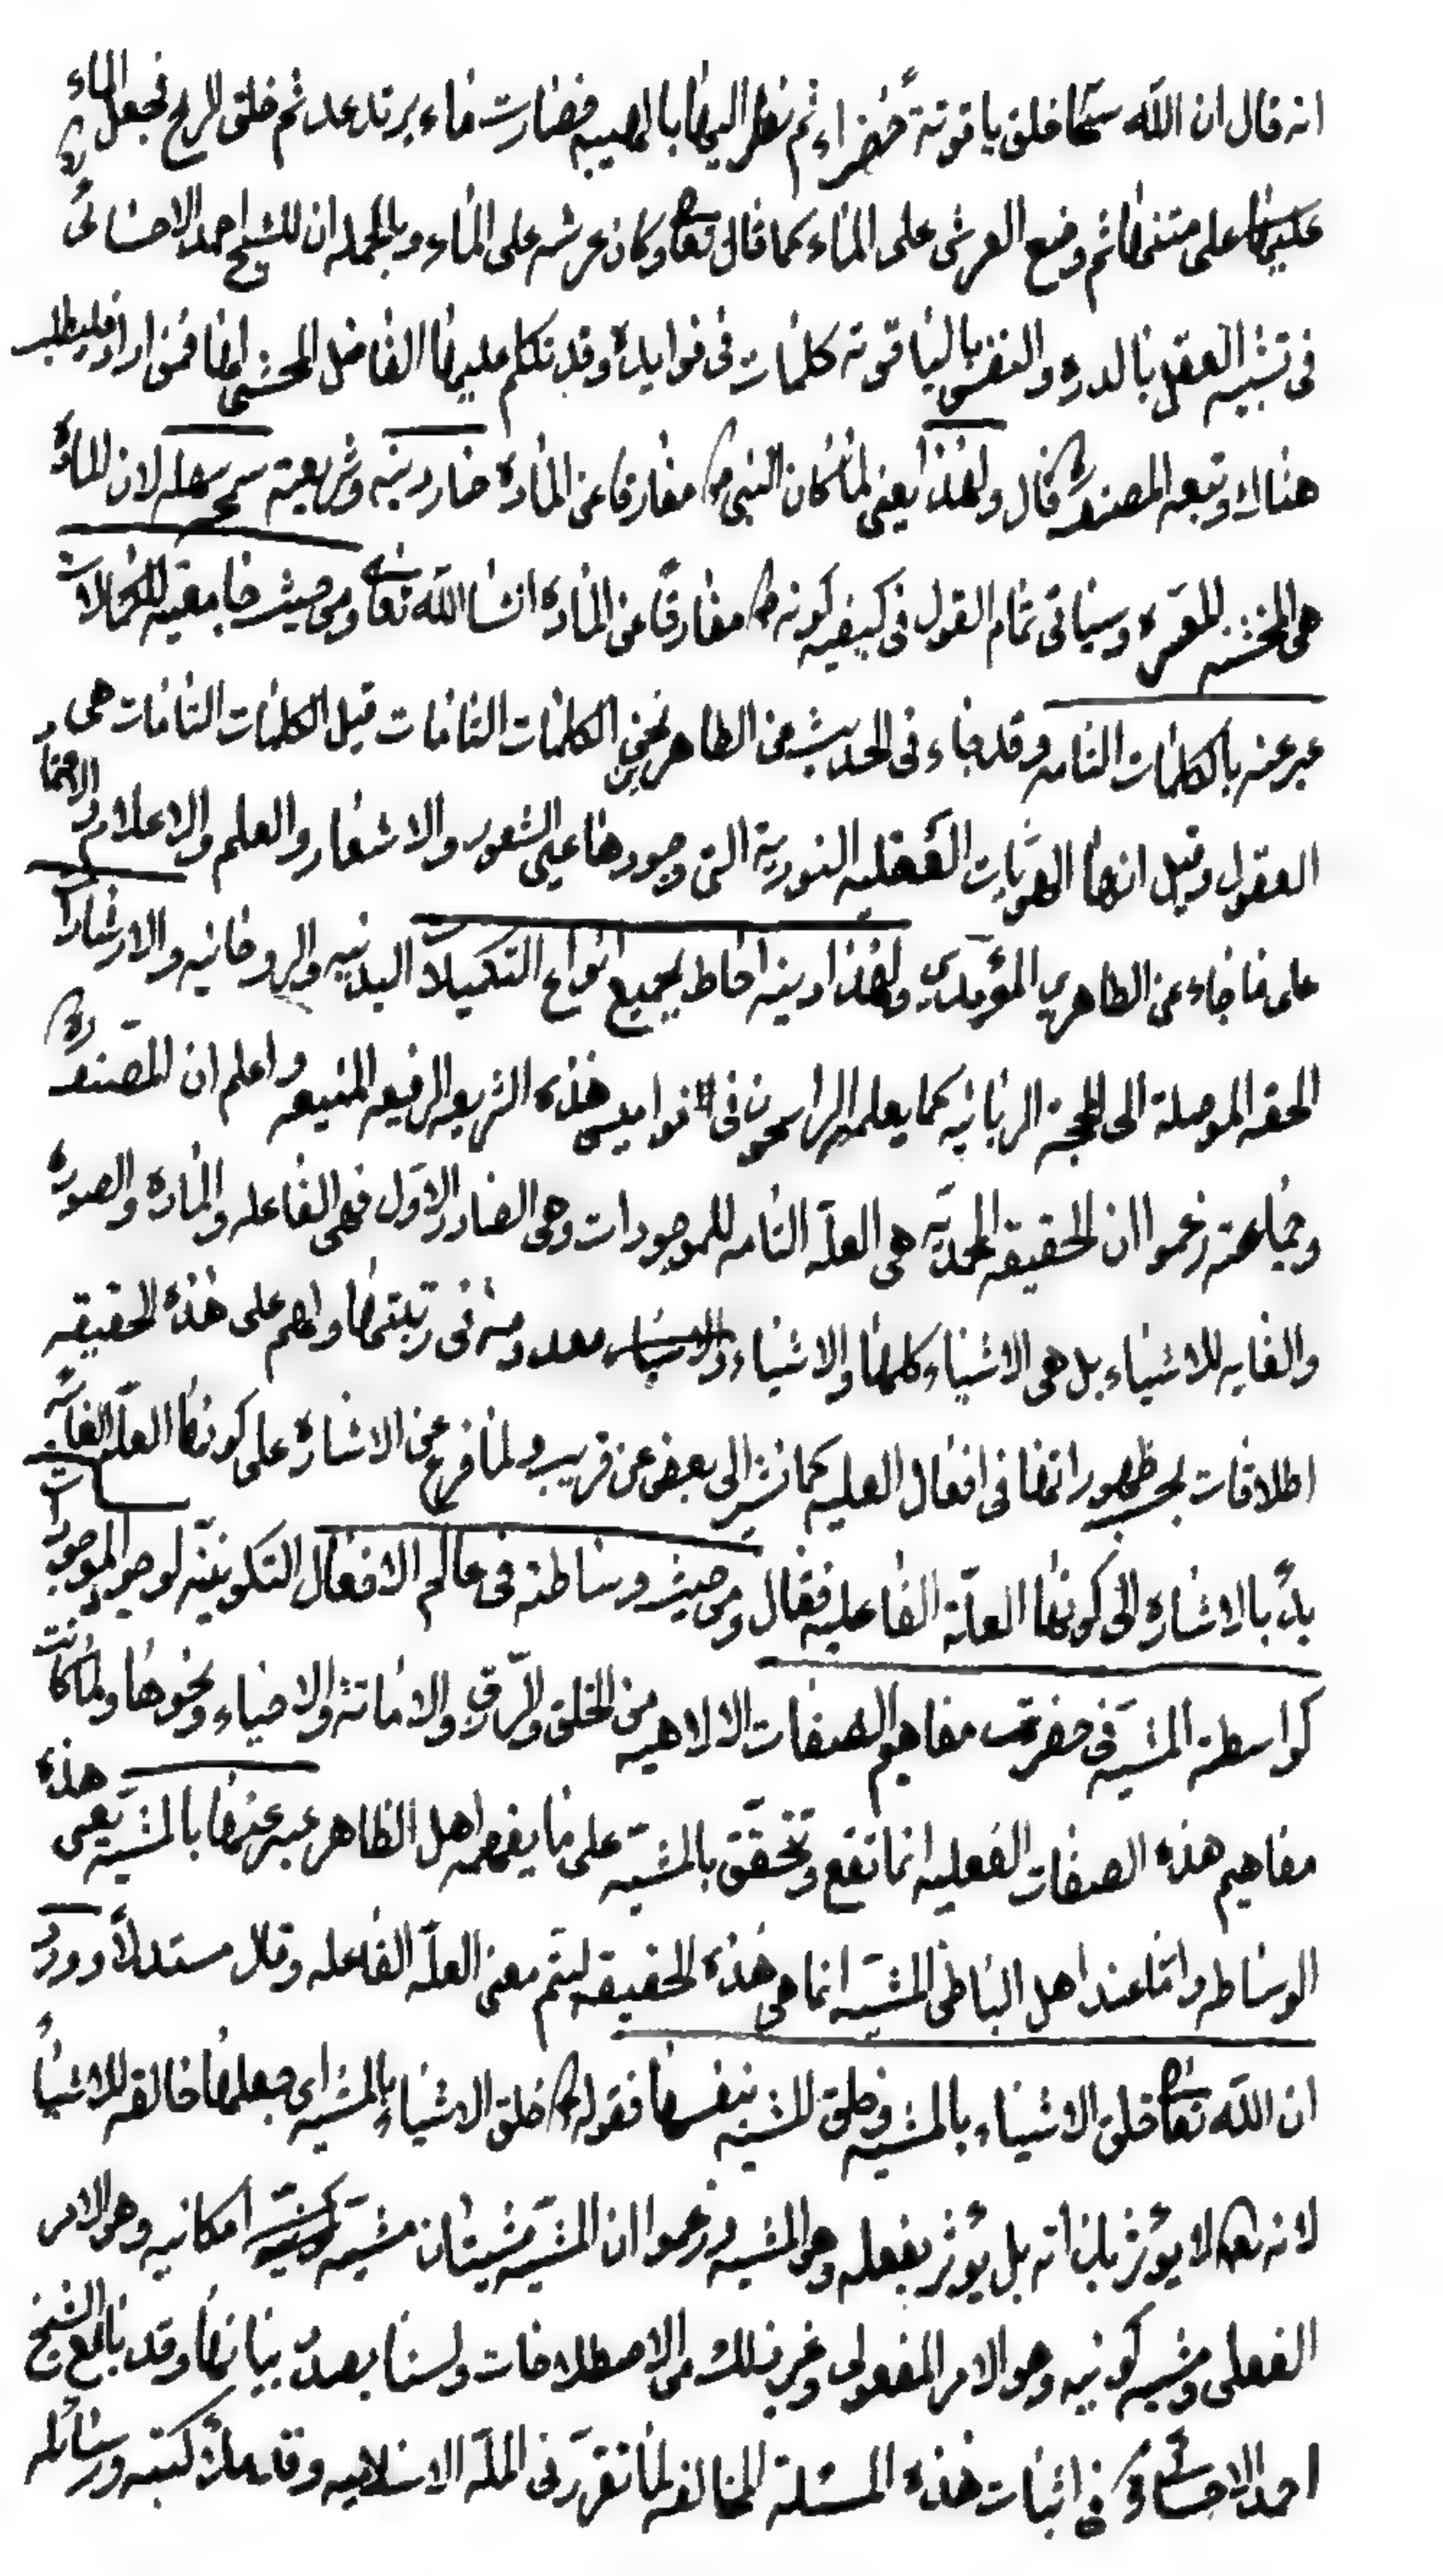 انه قال ان الله سبحانه خلق ياقوتة خضراء ثم نظر اليها بالهيبه فصارت ماء يرتعد ثم خلق الريح فجعل الماء
على متنها ثم وضع العرش على الماء كما قال تعالى وكان عرشه على الماء وبالجمله ان للشيخ احمد الاحسائى
فى تشبيه العقل بالدره والنفس بالياقوته كلمات فى فوايده وقد تكلم عليها الفاضل المحشى ايضا فمن اراد فليطلب
هناك وتبعه المصنف فقال ولهذا يعنى لما كان النبى ص مفارقا عن المادة صار دينه وشريعته سمحه سهله لان المادة
هى الخشنه وسياتى تمام القول فى كيفيه كونه ص مفارقا عن المادة انشا الله تعالى ومن حيث جامعيته للكمالات
عبر عنه بالكلمات التامه وقد جاء فى الحديث عن الطاهرين نحن الكلمات التامات قيل الكلمات التامات هى
العقول وقيل انها الهويات العقليه النورية التى وجودها عين الشعور والاشعار والعلم والاعلام
على ما جاء عن الطاهرين المؤيدين ولهذا دينه احاط بجميع انواع التكميلات البدنيه والروحانيه والارشادات
الحقه الموصلة الى المحجة الربانيه كما يعلمه الراسخون فى نواميس هذه الشريعه الرفيعه المنيعه واعلم ان المصنف
وجماعته زعموا ان الحقيقه المحمديه هى العلة التامه للموجودات وهى الصادر الاول فهى الفاعله والمادة والصورة
والغايه للاشياء بل هى الاشياء كلها والاشياء معدومه فى رتبتها ولهم على هذه الحقيقه
اطلاقات بحسب ظهوراتها فى افعال العليه كما نشير الى بعض عن قريب ولما فرغ عن الاشاره على كونها العلة الغائيه
بدء بالاشاره الى كونها العلة الفاعليه فقال ومن حيث وساطته فى عالم الافعال التكوينيه لوجود الموجودات
كواسطة المشيه فى مفاهيم الصفات الالاهيه من الخلق والرزق والاماتة والاحياء ونحوها ولما كانت
مفاهيم هذه الصفات الفعليه انما تقع وتتحقق بالمشيه على ما يفهمه اهل الظاهر عبر عنها بالمشيه يعنى هذه
الوساطه واما عند اهل الباطن المشيه انما هى هذه الحقيقه ليتم معنى العلة الفاعله وقال مستدلا وورد
ان الله تعالى خلق الاشياء بالمشيه وخلق المشيه بنفسها فقوله خلق الاشياء بالمشيه اى جعلها خالقه للاشياء
لانه تعالى لا يؤثر بذاته بل يؤثر بفعله وهو المشيه وزعموا ان المشيه مشيتان مشيه امكانيه وهو الامر
الفعلى ومشيه كونيه وهو الامر المفعولى وغير ذلك من الاصطلاحات ولسنا بصدد بيانها وقد بالغ الشيخ
احمد الاحسائى فى اثبات هذه المسئلة المخالفه لما تقرر فى الملة الاسلاميه وقد ملأ كتبه ورسائله